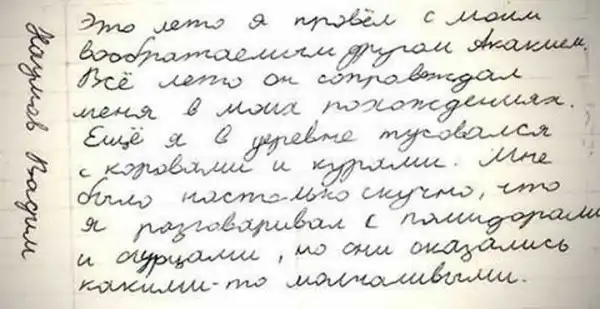 Наумов Вадим
Это лето я провёл с моим
воображаемым другом Акакием.
Всё лето он сопровождал
меня в моих похождениях.
Ещё я в деревне тусовался
с коровами и курями. Мне
было настолько скучно, что
я разговаривал с помидорами
и огурцами, но они оказались
какими-то молчаливыми.